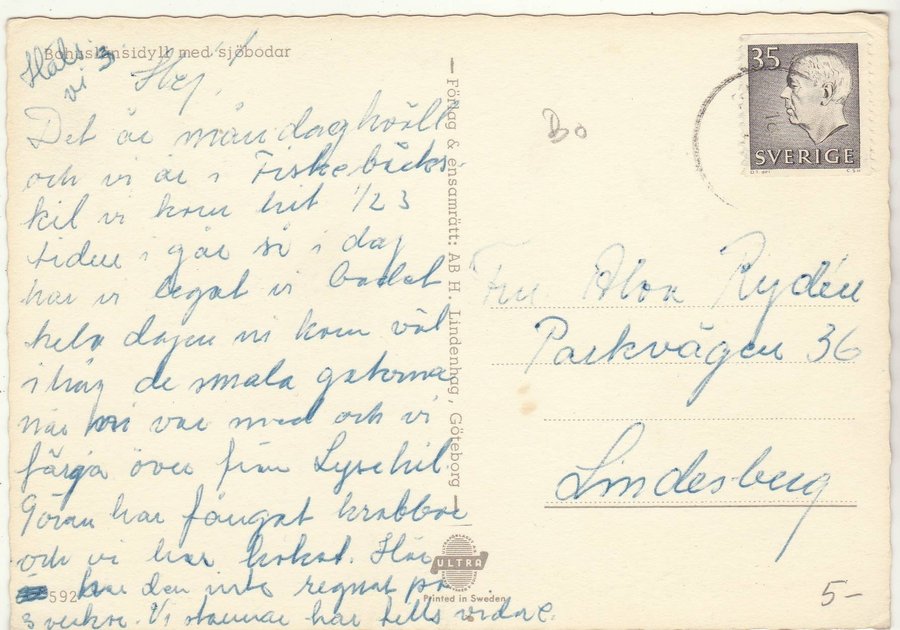 Bohuslänsidyll med sjöbodar
Häls.
vi 3
Hej!
Det är måndagkväll
och vi är i Fiskebäcks-
kil vi kom hit 1/2 3
tiden i går så i dag
har vi legat vi badet
hela dagen ni kom väl
ihåg de smala gatorna
när ni var med och vi
färja över från Lysekil.
Göran har fångat krabbor
och vi har kokat. Här
har den inte regnat på
3 veckor. Vi stannar här tills vidare.
592
Förlag & ensamrätt: AB H. Lindenhag, Göteborg
ULTRA
Printed in Sweden
Bo
35
SVERIGE
Fru Alva Rydén
Parkvägen 36
Lindesberg
5-